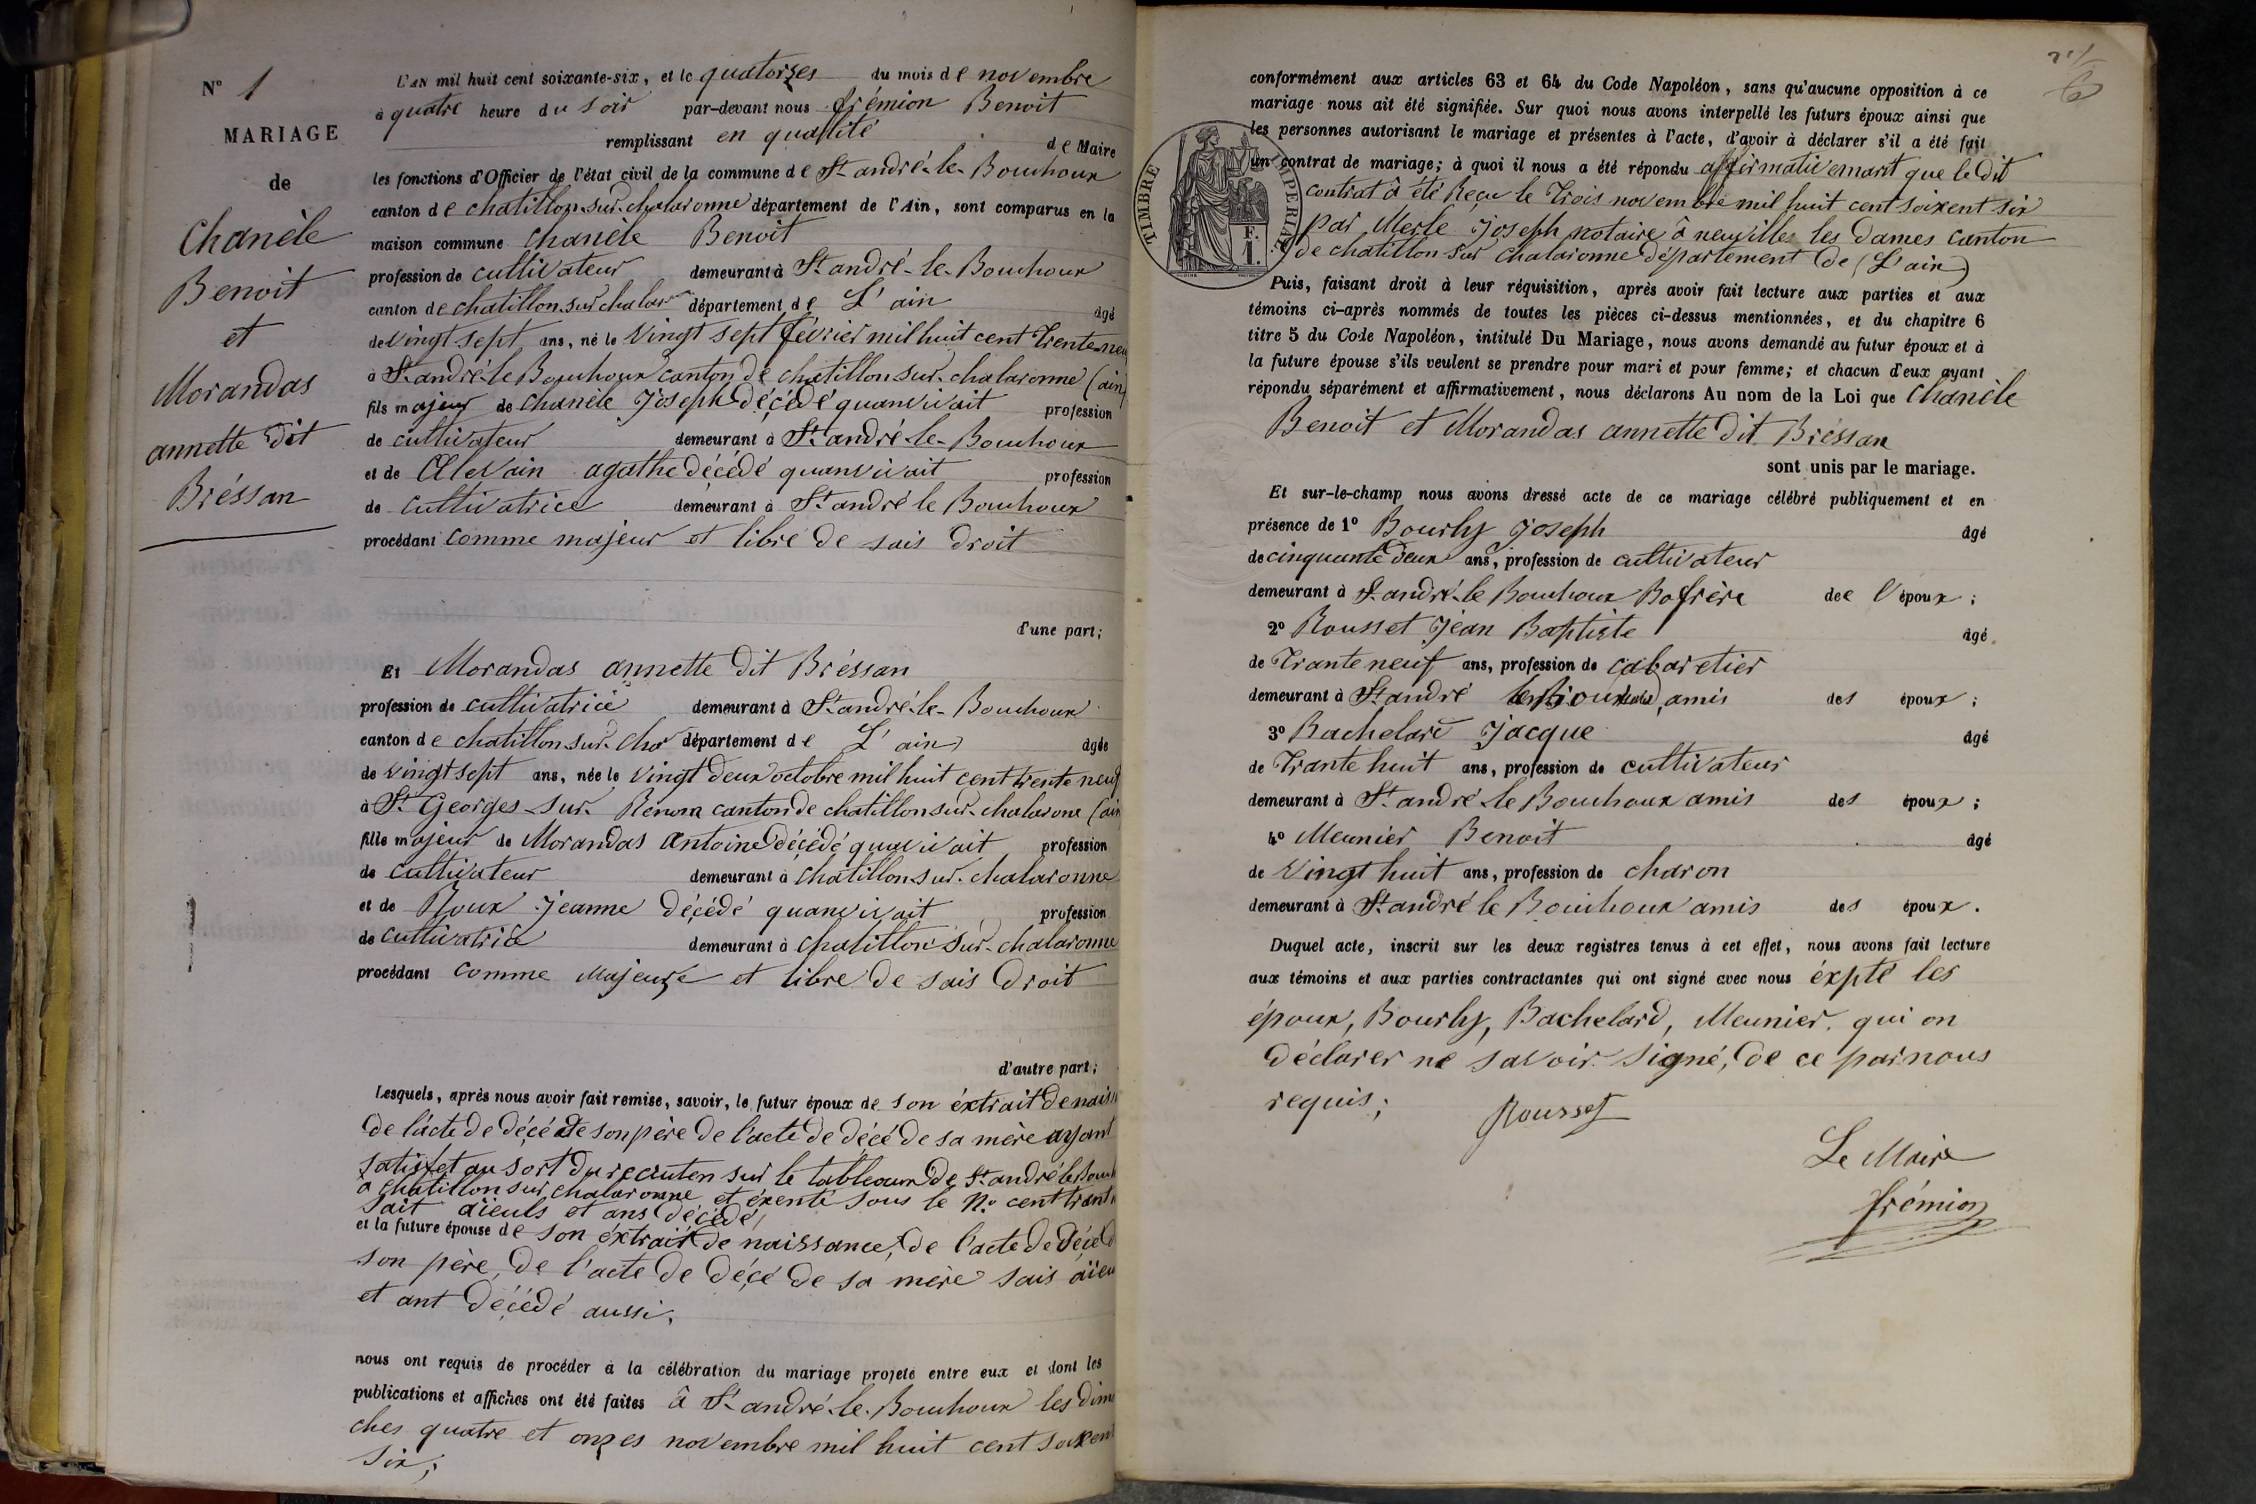 N° 1
MARIAGE
de
Chanèle
Benoit
et
Morandas
annette dit
Bréssan
L'AN mil huit cent soixante-six, et le quatorzes du mois de novembre
à quatre heure du soir par-devant nous frémion Benoit
remplissant en qualité de Maire
les fonctions d'Officier de l'état civil de la commune de St andré-le-Bouchoux
canton de chatillon-sur-chalaronne département de l'Ain, sont comparus en la
maison commune chanèle Benoit
profession de cultivateur demeurant à St andré-le-Bouchoux
canton de chatillon sur chalar département de L'ain âgé
de vingt sept ans, né le vingt sept février mil huit cent trente neu
à St andré-le Bouchoux canton de chatillon sur chalaronne (ain)
fils majeur de chanèle Joseph décédé quanvivait profession
de cultivateur demeurant à St andré-le-Bouchoux
et de agathe décédé quanvivait profession
de cultivatrice demeurant à St andré le Bouchoux
procédant comme majeur et libre de sais droit
d'une part;
Et Morandas annette dit Bréssan
profession de cultivatrice demeurant à St andré-le-Bouchoux
canton de chatillon sur cha département de L'ain âgée
de vingt sept ans, née le vingt deux octobre mil huit cent trente neuf
à St Georges-sur Renom canton de chatillon sur chalarone (ain
fille majeur de Morandas antoine décédé quavivait profession
de cultivateur demeurant à chatillon sur chalaronne
et de Roux Jeanne décédé quanvivait profession
de cultivatrice demeurant à chatillon sur chalaronne
procédant comme majeure et libre de sais droit
d'autre part;
Lesquels, après nous avoir fait remise, savoir, le futur époux de son éxtrait de naiss
de l'acte de décé de son père de l'acte de décé de sa mère ayant
satisfet au sort du recruten sur le tableaux de St andré le Bouch
à chatillon sur chalaronne et éxenté sous le N° cent trant
sait aïeuls et ans décédé
et la future épouse de son éxtrait de naissance, de l'acte de décé d
son père, de l'acte de décé de sa mère sais aïeu
et ant décédé aussi.
nous ont requis de procéder à la célébration du mariage projeté entre eux et dont les
publications et affiches ont été faites à St andré-le-Bouchoux les dim
ches quatre et onzes novembre mil huit cent soixent
six;
conformément aux articles 63 et 64 du Code Napoléon, sans qu'aucune opposition à ce
mariage nous ait été signifiée. Sur quoi nous avons interpellé les futurs époux ainsi que
les personnes autorisant le mariage et présentes à l'acte, d'avoir à déclarer s'il a été fait
un contrat de mariage; à quoi il nous a été répondu affirmativemant que le dit
contrat à été Reçu le trois novembre mil huit cent soixent six
par Merle Joseph notaire à neuville les dames canton
de chatillon sur chalaronne département de (L'ain)
TIMBRE IMPERIAL
F.
1.
Puis, faisant droit à leur réquisition, après avoir fait lecture aux parties et aux
témoins ci-après nommés de toutes les pièces ci-dessus mentionnées, et du chapitre 6
titre 5 du Code Napoléon, intitulé Du Mariage, nous avons demandé au futur époux et à
la future épouse s'ils veulent se prendre pour mari et pour femme; et chacun d'eux ayant
répondu séparément et affirmativement, nous déclarons Au nom de la Loi que chanèle
Benoit et Morandas annette dit Bréssan
sont unis par le mariage.
Et sur-le-champ nous avons dressé acte de ce mariage célébré publiquement et en
présence de 1° Bourly Joseph âgé
de cinquante deux ans, profession de cultivateur
demeurant à St andré-le Bouchoux Bofrère dee l'époux;
2° Rousset Jean Baptiste âgé
de trante neuf ans, profession de cabaretier
demeurant à St andré amis des époux;
3° Bachelard Jacque âgé
de trante huit ans, profession de cultivateur
demeurant à St andré-le Bouchoux amis des époux;
4° Meunier Benoit âgé
de vingt huit ans, profession de charon
demeurant à St andré le Bouchoux amis des époux.
Duquel acte, inscrit sur les deux registres tenus à cet effet, nous avons fait lecture
aux témoins et aux parties contractantes qui ont signé avec nous éxpté les
époux, Bourly, Bachelard, Meunier. qui on
déclarer ne savoir signé, de ce par nous
requis;
Rousset
Le Maire
frémion